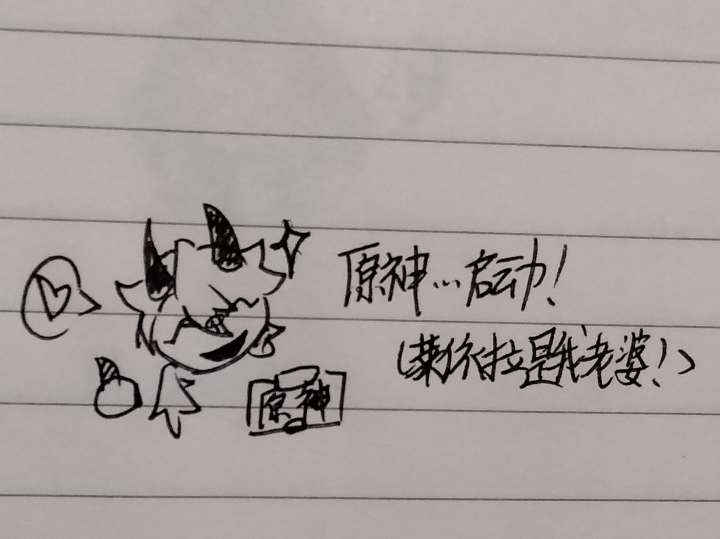 原神…启动！
（莱依拉是我老婆！）
原神